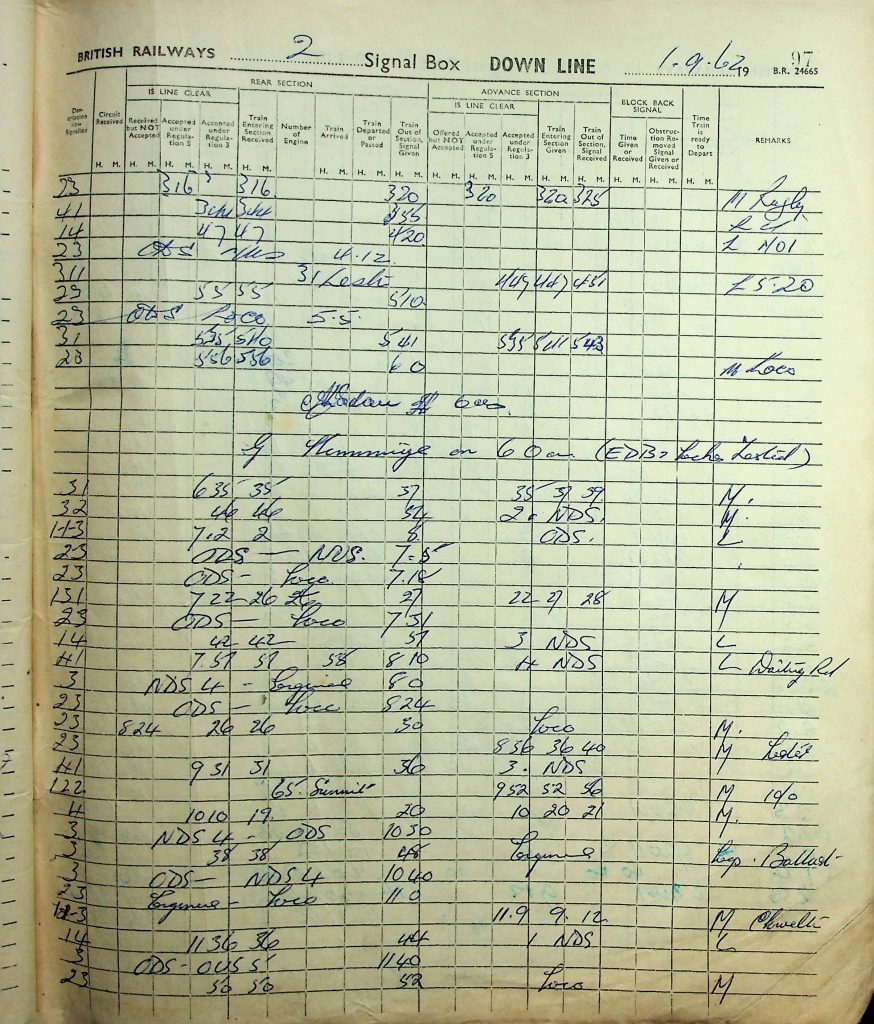 BRITISH RAILWAYS 2 Signal Box DOWN LINE 1.9.62 19 97
B.R. 24665
REAR SECTION ADVANCE SECTION
IS LINE CLEAR IS LINE CLEAR BLOCK BACK SIGNAL
Description now Signalled Circuit Received Received but NOT Accepted Accepted under Regulation 5 Accepted under Regulation 3 Train Entering Section Received Number of Engine Train Arrived Train Departed or Passed Train Out of Section, Signal Given Offered but NOT Accepted Accepted under Regulation 5 Accepted under Regulation 3 Train Entering Section Given Train Out of Section, Signal Received Time Given or Received Obstruction Removed Signal Given or Received Time Train is ready to Depart REMARKS
H. M. H. M. H. M. H. M. H. M. H. M. H. M. H. M. H. M. H. M. H. M. H. M. H. M. H. M. H. M. H. M.
23 316 316 320 320 320 325 M
41 355 L
14 47 47 420 L NO1
23 4.12
311 31 447 447 451 L 5.20
23 55 55 510
23 Loco 5.5.
31 535 540 541 535 541 543
23 556 556 6 0 M Loco
on 6 0 am
31 6 35 35 37 35 37 39 M.
32 46 46 54 2. NDS. M.
1-1-3 7.2 2 8 ODS. L
23 ODS — NDS. 7.5
23 ODS - Loco. 7.18
131 7 22 26 26 27 22 27 28 M
23 ODS — Loco 7 31
14 42 42 57 3 NDS L
41 7.57 57 58 8 10 4 NDS L Waiting Rd
3 NDS 4 - Engine 8 0
23 ODS — Loco 8 24
23 8 24 26 26 30 Loco M.
23 8 36 36 40 M
41 9 31 31 36 3. NDS
122 65. Summit 9 52 52 56 M
4 10 10 19. 20 10 20 21 M.
3 NDS 4 - ODS 10 30
3 38 38 48 Engine Ballast
3 ODS — NDS 4 10 40
23 Engine - Loco 11 0
1-1-3 11.9 9. 12 M
14 11 36 36 44 1 NDS L
3 ODS - 11 40
23 50 50 52 Loco M